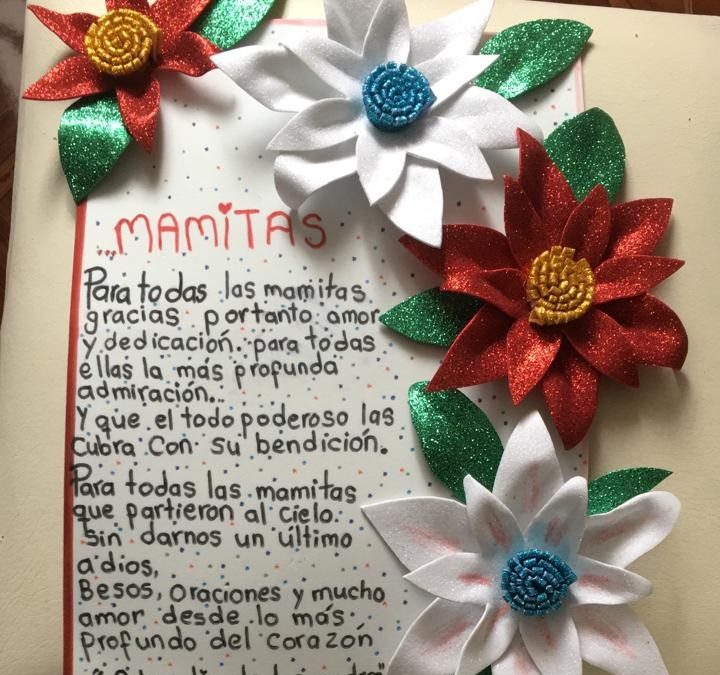 ...MAMiTAS
Para todas las mamitas
gracias portanto amor
y dedicación. para todas
ellas la más profunda
admiración...
Y que el todo poderoso las
cubra con su bendición.
Para todas las mamitas
que partieron al cielo.
Sin darnos un último
adios,
Besos, oraciones y mucho
amor desde lo más
profundo del corazón